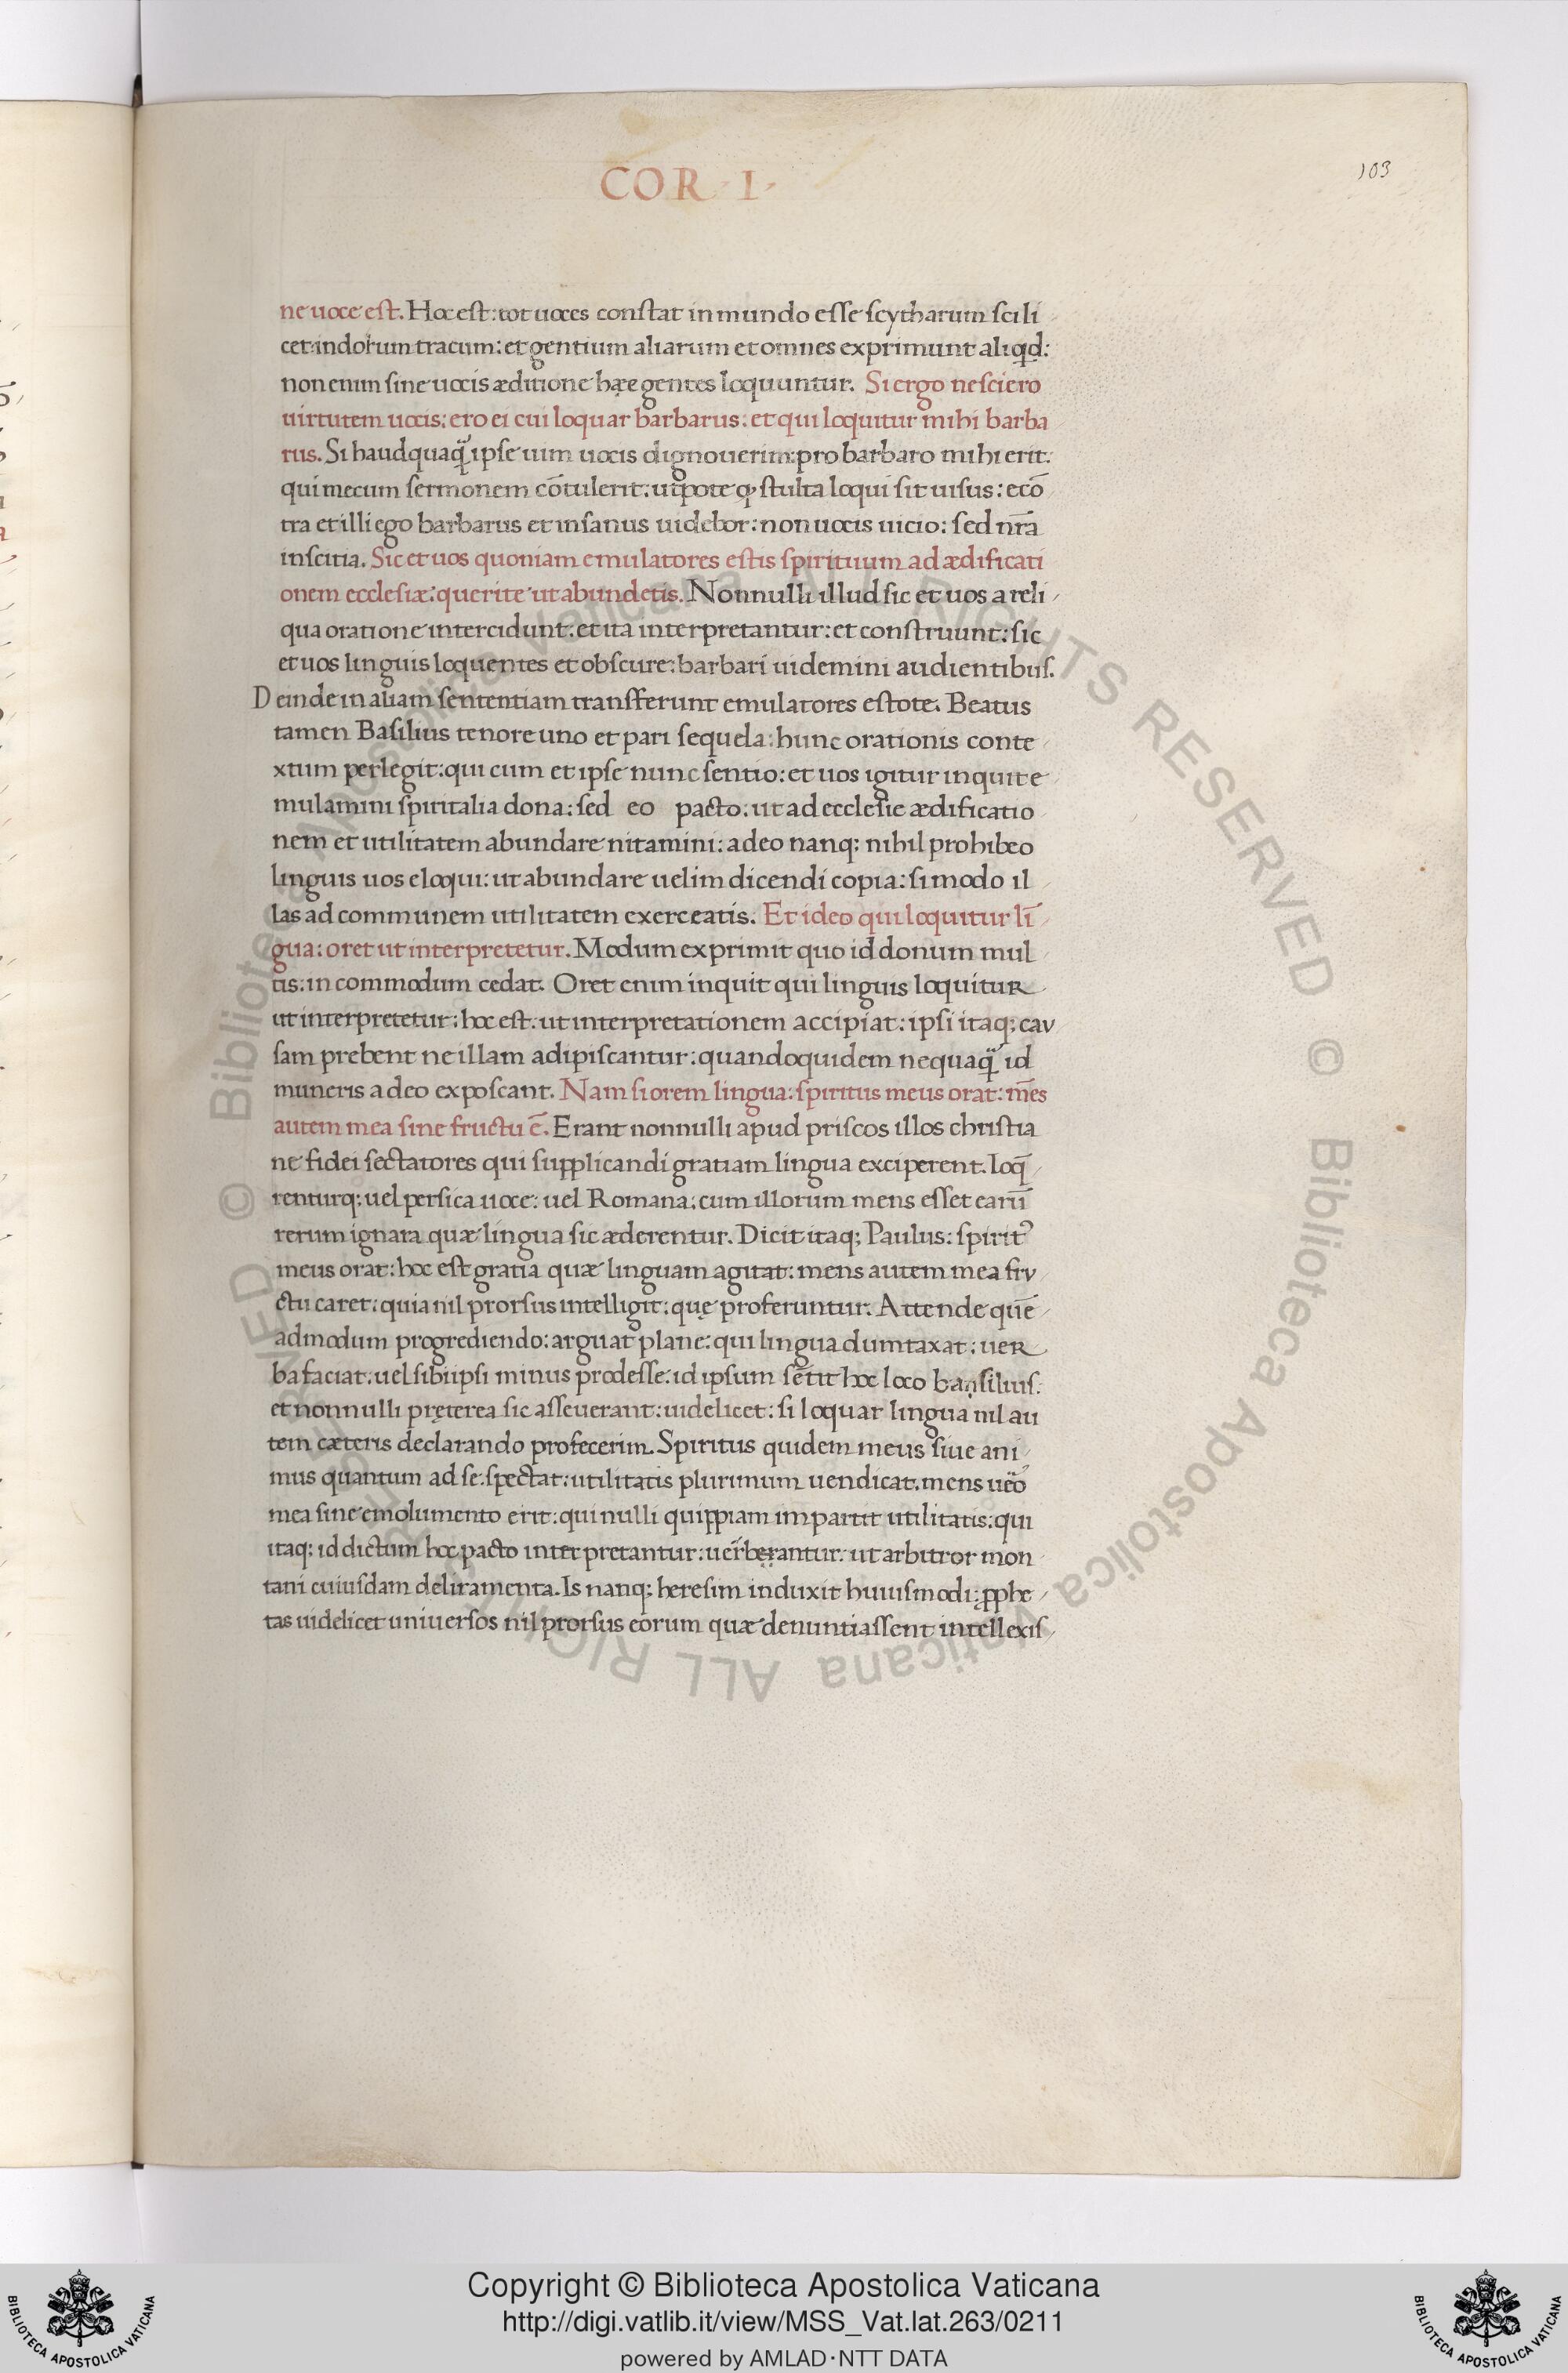 COR · I ·
103
ne uoce est. Hoc est: tot uoces constat in mundo esse scytharum scili
cet: indorum tracum: et gentium aliarum et omnes exprimunt aliqd:
non enim sine uocis æditione hæ gentes loquuntur. Si ergo nesciero
uirtutem uocis: ero ei cui loquar barbarus: et qui loquitur mihi barba
rus. Si haudquaq̃ ipse uim uocis dignouerim: pro barbaro mihi erit:
qui mecum sermonem cōtulerit: utpote qꝫ stulta loqui sit uisus: ecō
tra et illi ego barbarus et insanus uidebor: non uocis uicio: sed nr̄a
inscitia. Sic et uos quoniam emulatores estis spirituum ad ædificati
onem ecclesiæ: querite ut abundetis. Nonnulli illud sic et uos a reli
qua oratione intercidunt: et ita interpretantur: et construunt: sic
et uos linguis loquentes et obscure: barbari uidemini audientibus.
Deinde in aliam sententiam transferunt emulatores estote. Beatus
tamen Basilius tenore uno et pari sequela: hunc orationis conte
xtum perlegit: qui cum et ipse nunc sentio: et uos igitur inquit e
mulamini spiritalia dona: sed eo pacto: ut ad ecclesie ædificatio
nem et utilitatem abundare nitamini: adeo nanqꝫ nihil prohibeo
linguis uos eloqui: ut abundare uelim dicendi copia: si modo il
las ad communem utilitatem exerceatis. Et ideo qui loquitur lī
gua: oret ut interpretetur. Modum exprimit quo id donum mul
tis: in commodum cedat. Oret enim inquit qui linguis loquitur
ut interpretetur: hoc est: ut interpretationem accipiat: ipsi itaqꝫ cau
sam prebent ne illam adipiscantur: quandoquidem nequaq̃ id
muneris a deo exposcant. Nam si orem lingua: spiritus meus orat: mēs
autem mea sine fructu ē. Erant nonnulli apud priscos illos christia
ne fidei sectatores qui supplicandi gratiam lingua exciperent. loq̄
renturqꝫ uel persica uoce: uel Romana: cum illorum mens esset earū
rerum ignara quæ lingua sic æderentur. Dicit itaqꝫ Paulus: spirit᾽
meus orat: hoc est gratia quæ linguam agitat: mens autem mea fru
ctu caret: quia nil prorsus intelligit: quę proferuntur. Attende quē
admodum progrediendo: arguat plane: qui lingua dumtaxat: uer
ba faciat: uel sibiipsi minus prodesse: id ipsum sētit hoc loco basilius:
et nonnulli pręterea sic asseuerant: uidelicet: si loquar lingua nil au
tem cæteris declarando profecerim. Spiritus quidem meus siue ani
mus quantum ad se spectat: utilitatis plurimum uendicat. mens uēo
mea sine emolumento erit: qui nulli quippiam impartit utilitatis: qui
itaqꝫ id dictum hoc pacto interpretantur: uerberantur: ut arbitror mon
tani cuiusdam deliramenta. Is nanqꝫ heresim induxit huiusmodi: ꝓphe
tas uidelicet uniuersos nil prorsus eorum quæ denuntiassent intellexis
© Biblioteca Apostolica Vaticana ALL RIGHTS RESERVED © Biblioteca Apostolica Vaticana ALL RIGHTS RESERVED
Copyright © Biblioteca Apostolica Vaticana
http://digi.vatlib.it/view/MSS_Vat.lat.263/0211
powered by AMLAD·NTT DATA
BIBLIOTECA APOSTOLICA VATICANA
BIBLIOTECA APOSTOLICA VATICANA